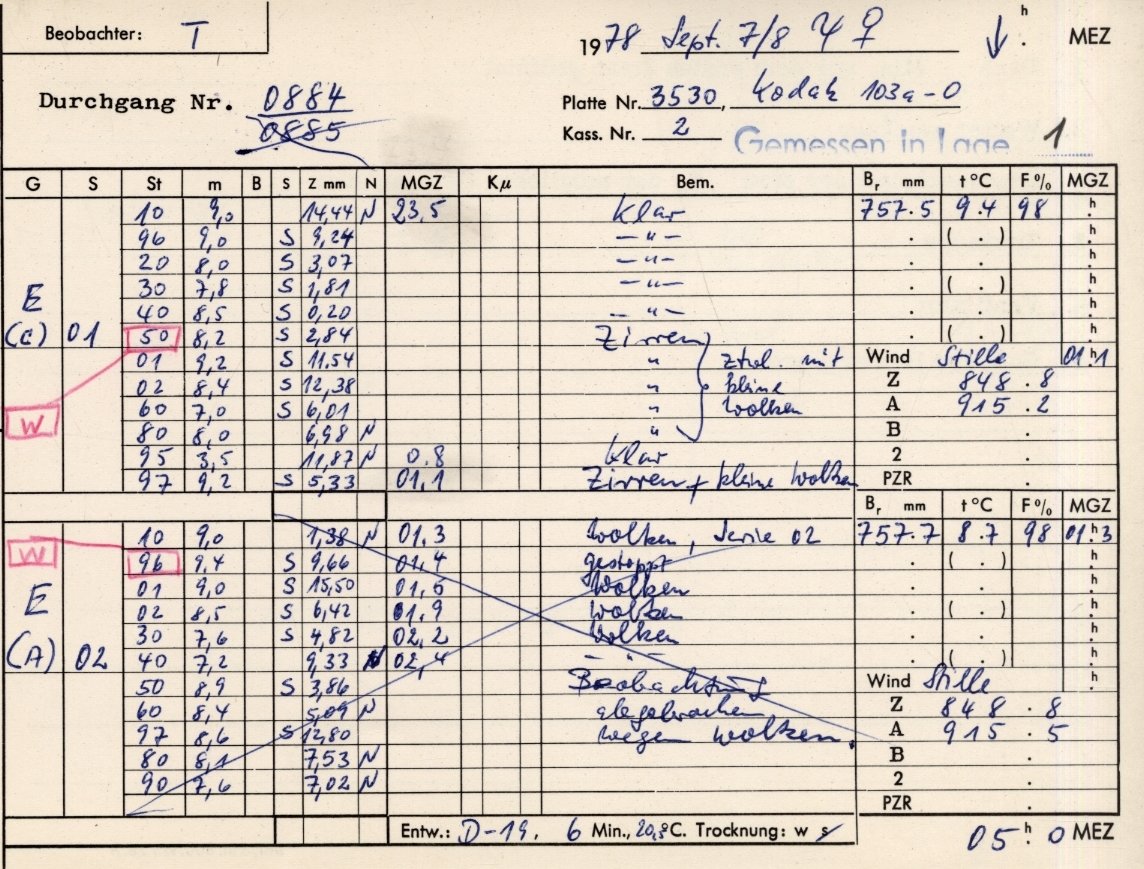 Beobachter: T
1978 Sept. 7/8 ♃ ♀ ↓ h. MEZ
Durchgang Nr. 0884
0885
Platte Nr. 3530, Kodak 103a-0
Kass. Nr. 2 Gemessen in Lage 1
G S St m B S Z mm N MGZ Kμ Bem. Br mm t°C F% MGZ
10 9,0 14,44 N 23,5 Klar 757.5 9.4 98 h.
96 9,0 S 9,24 —"— . ( . ) h.
20 8,0 S 3,07 —"— . . h.
30 7,8 S 1,81 —"— . ( . ) h.
40 8,5 S 0,20 —"— . . h.
E (C) 01 50 8,2 S 2,84 Zirren . ( . ) h.
01 9,2 S 11,54 " mit Wind Stille 01h1
02 8,4 S 12,38 " kleine Z 848.8
W 60 7,0 S 6,01 " Wolken A 915.2
80 8,0 6,98 N " B .
95 3,5 11,87 N 0.8 Klar 2 .
97 9,2 S 5,33 01,1 Zirren + kleine Wolken PZR .
Br mm t°C F% MGZ
W 10 9,0 1,38 N 01,3 Wolken, Serie 02 757.7 8.7 98 01h3
96 9,4 S 9,66 01,4 gestoppt . ( . ) h.
E 01 9,0 S 15,50 01,6 Wolken . . h.
02 8,5 S 6,42 01,9 Wolken . ( . ) h.
30 7,6 S 4,82 02,2 Wolken . . h.
(A) 02 40 7,2 9,33 N 02,4 —"— . ( . ) h.
50 8,9 S 3,86 Beobachtung Wind Stille h.
60 8,4 5,09 N abgebrochen Z 848.8
97 8,6 S 12,80 wegen Wolken. A 915.5
80 8,1 7,53 N B .
90 7,6 7,02 N 2 .
PZR .
Entw.: D-19, 6 Min., 20,5°C. Trocknung: w s 05h.0 MEZ